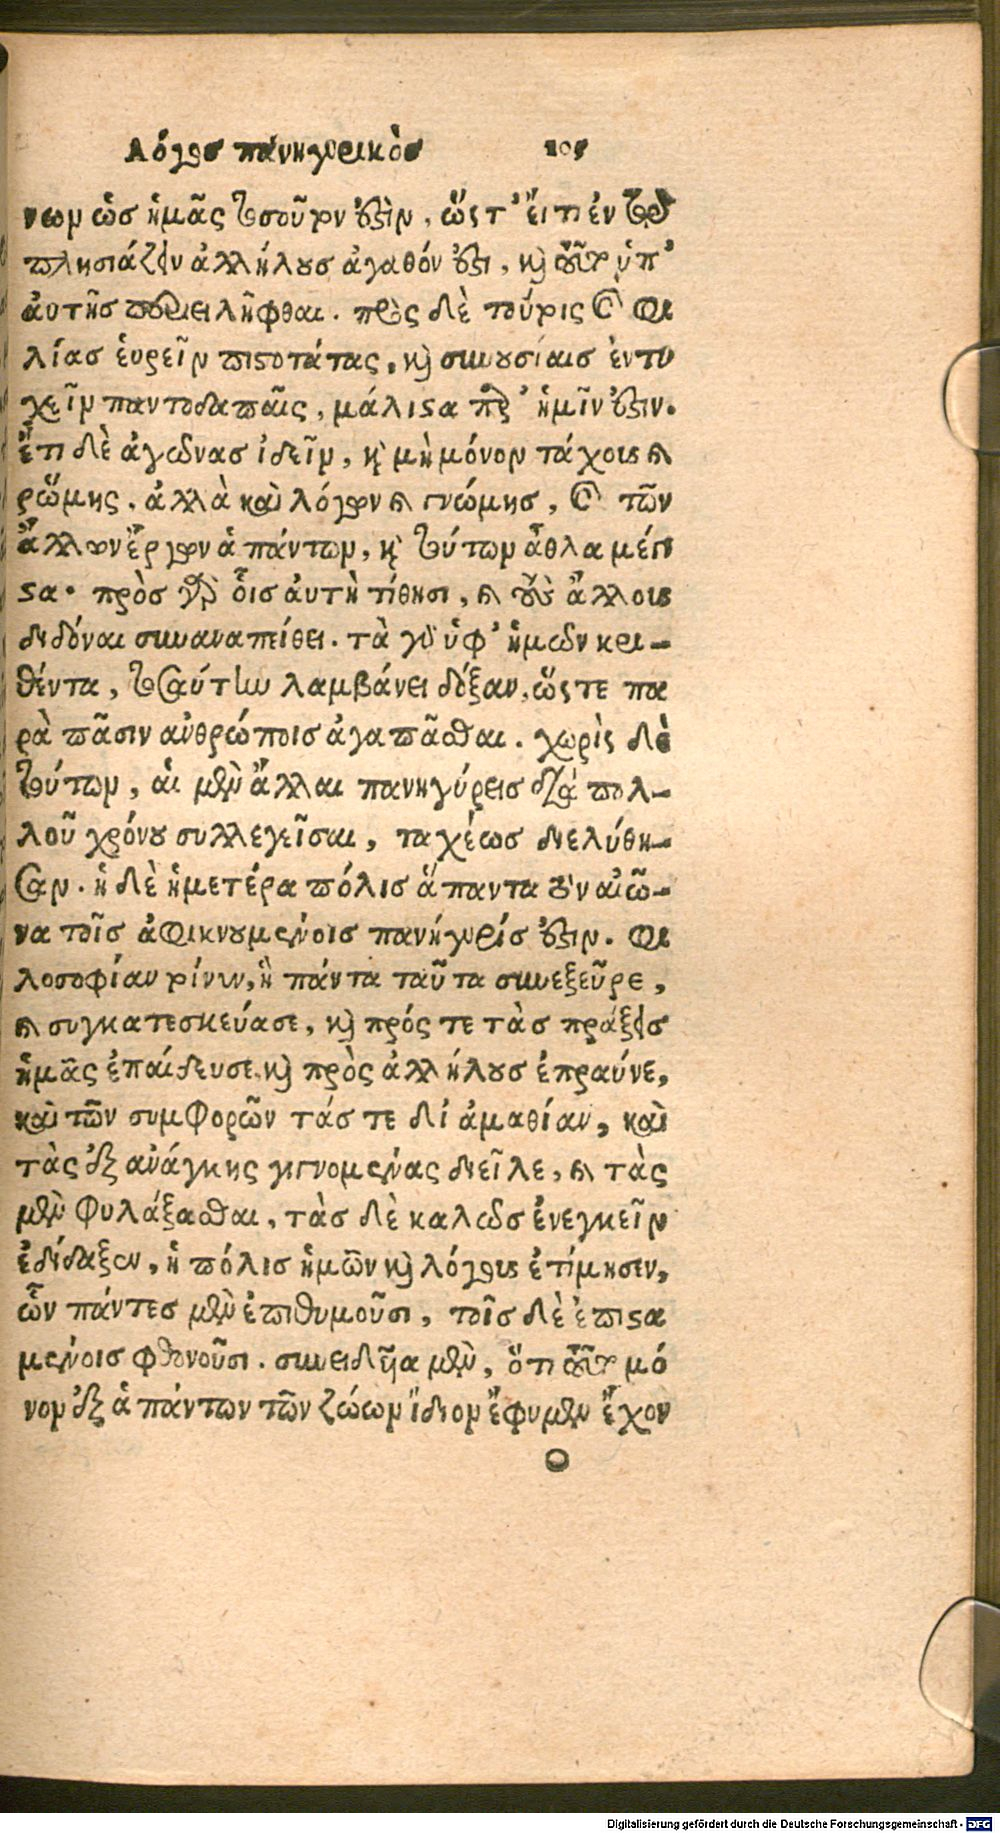 Λόγος πανηγυρικὸς 105
νων ὡς ἡμᾶς τοσοῦτόν ἐστιν, ὥστ' εἴ τι ἐν τῷ
πλησιάζειν ἀλλήλους ἀγαθόν ἐστι, καὶ τοῦτο ὑπ'
αὐτῆς περιειλῆφθαι. πρὸς δὲ τούτοις καὶ φι
λίας εὑρεῖν πιστοτάτας, καὶ συνουσίαις ἐντυ
χεῖν παντοδαπαῖς, μάλιστα παρ' ἡμῖν ἐστιν.
ἔτι δὲ ἀγῶνας ἰδεῖν, καὶ μὴ μόνον τάχους καὶ
ῥώμης. ἀλλὰ καὶ λόγων καὶ γνώμης, καὶ τῶν
ἄλλων ἔργων ἁπάντων, καὶ τούτων ἆθλα μέγι
στα. πρὸς γὰρ οἷς αὐτὴ τίθησι, καὶ τοὺς ἄλλους
διδόναι συναναπείθει. τὰ γὰρ ὑφ' ἡμῶν κρι-
θέντα, τοσαύτην λαμβάνει δόξαν, ὥστε πα
ρὰ πᾶσιν ἀνθρώποις ἀγαπᾶσθαι. χωρὶς δὲ
τούτων, αἱ μὲν ἄλλαι πανηγύρεις διὰ πολ-
λοῦ χρόνου συλλεγεῖσαι, ταχέως διελύθη-
σαν. ἡ δὲ ἡμετέρα πόλις ἅπαντα τὸν αἰῶ-
να τοῖς ἀφικνουμένοις πανήγυρίς ἐστιν. φι
λοσοφίαν τοίνυν, ἣ πάντα ταῦτα συνεξεῦρε,
καὶ συγκατεσκεύασε, καὶ πρός τε τὰς πράξεις
ἡμᾶς ἐπαίδευσε, καὶ πρὸς ἀλλήλους ἐπραΰνε,
καὶ τῶν συμφορῶν τάς τε δι' ἀμαθίαν, καὶ
τὰς ἐξ ἀνάγκης γιγνομένας διεῖλε, καὶ τὰς
μὲν φυλάξασθαι, τὰς δὲ καλῶς ἐνεγκεῖν
ἐδίδαξεν, ἡ πόλις ἡμῶν καὶ λόγους ἐτίμησεν,
ὧν πάντες μὲν ἐπιθυμοῦσι, τοῖς δὲ ἐπιστα
μένοις φθονοῦσι. συνειδυῖα μὲν, ὅτι τοῦτο μό
νον ἐξ ἁπάντων τῶν ζώων ἴδιον ἔφυμεν ἔχον
O
Digitalisierung gefördert durch die Deutsche Forschungsgemeinschaft - DFG